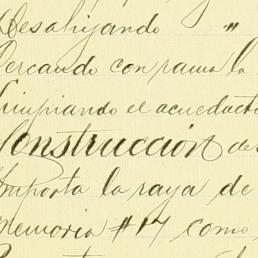 Desahijando "
Cercando con rama la
Limpiando el acueducto
Construcción de
Importa la raya de
Memoria #17 como